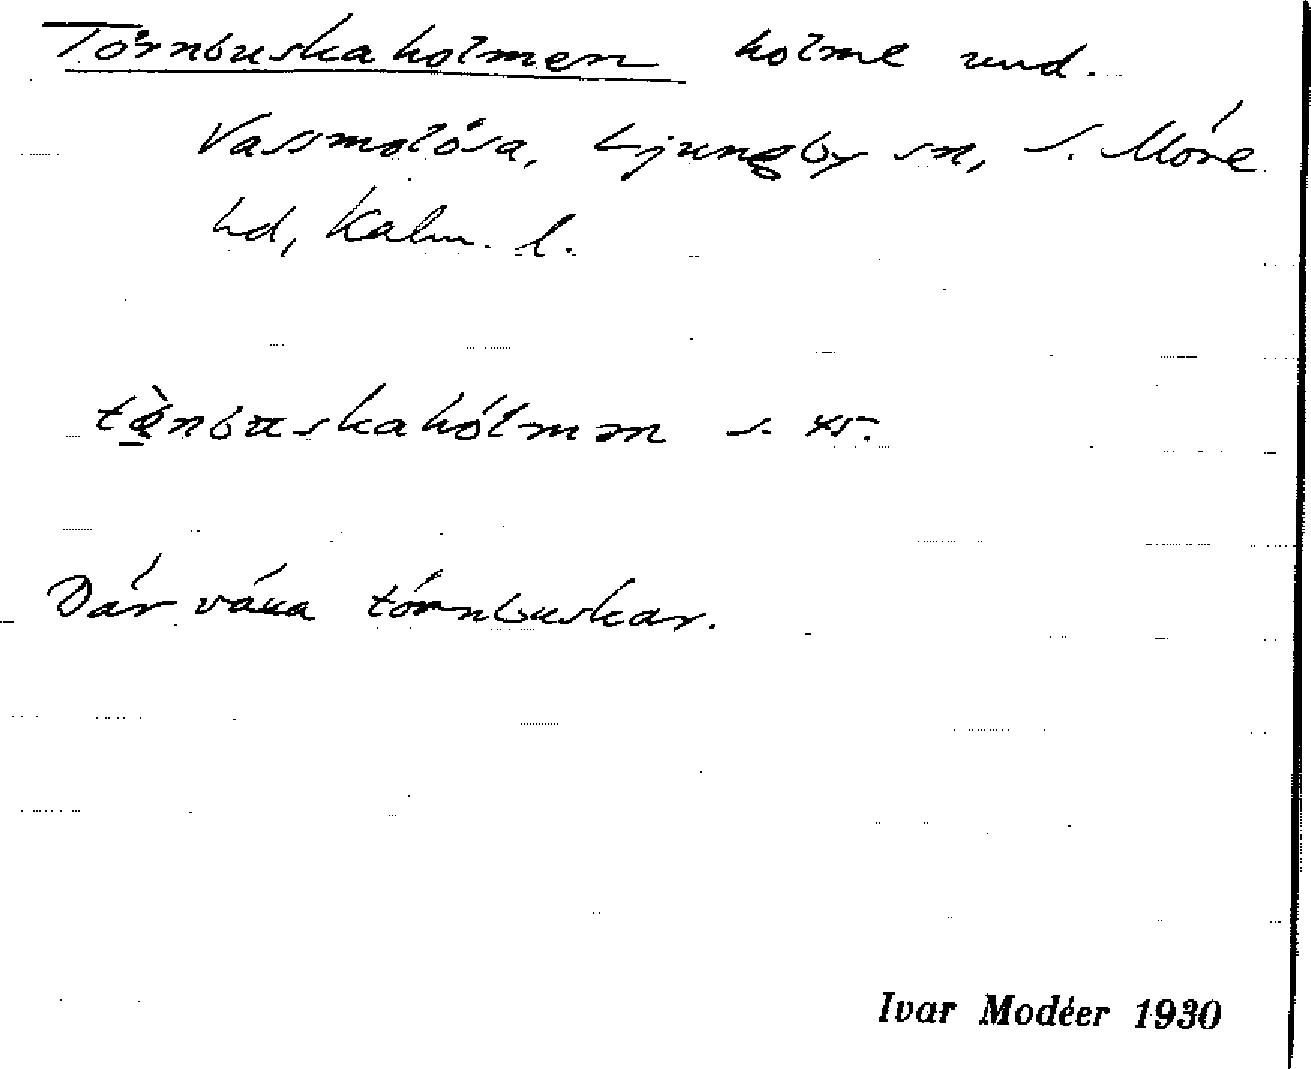 Törnbuskaholmen holme und.
Vassmolösa, Ljungby sn, S. Möre
hd, Kalm. l.
s.
Där växa törnbuskar.
Ivar Modéer 1930